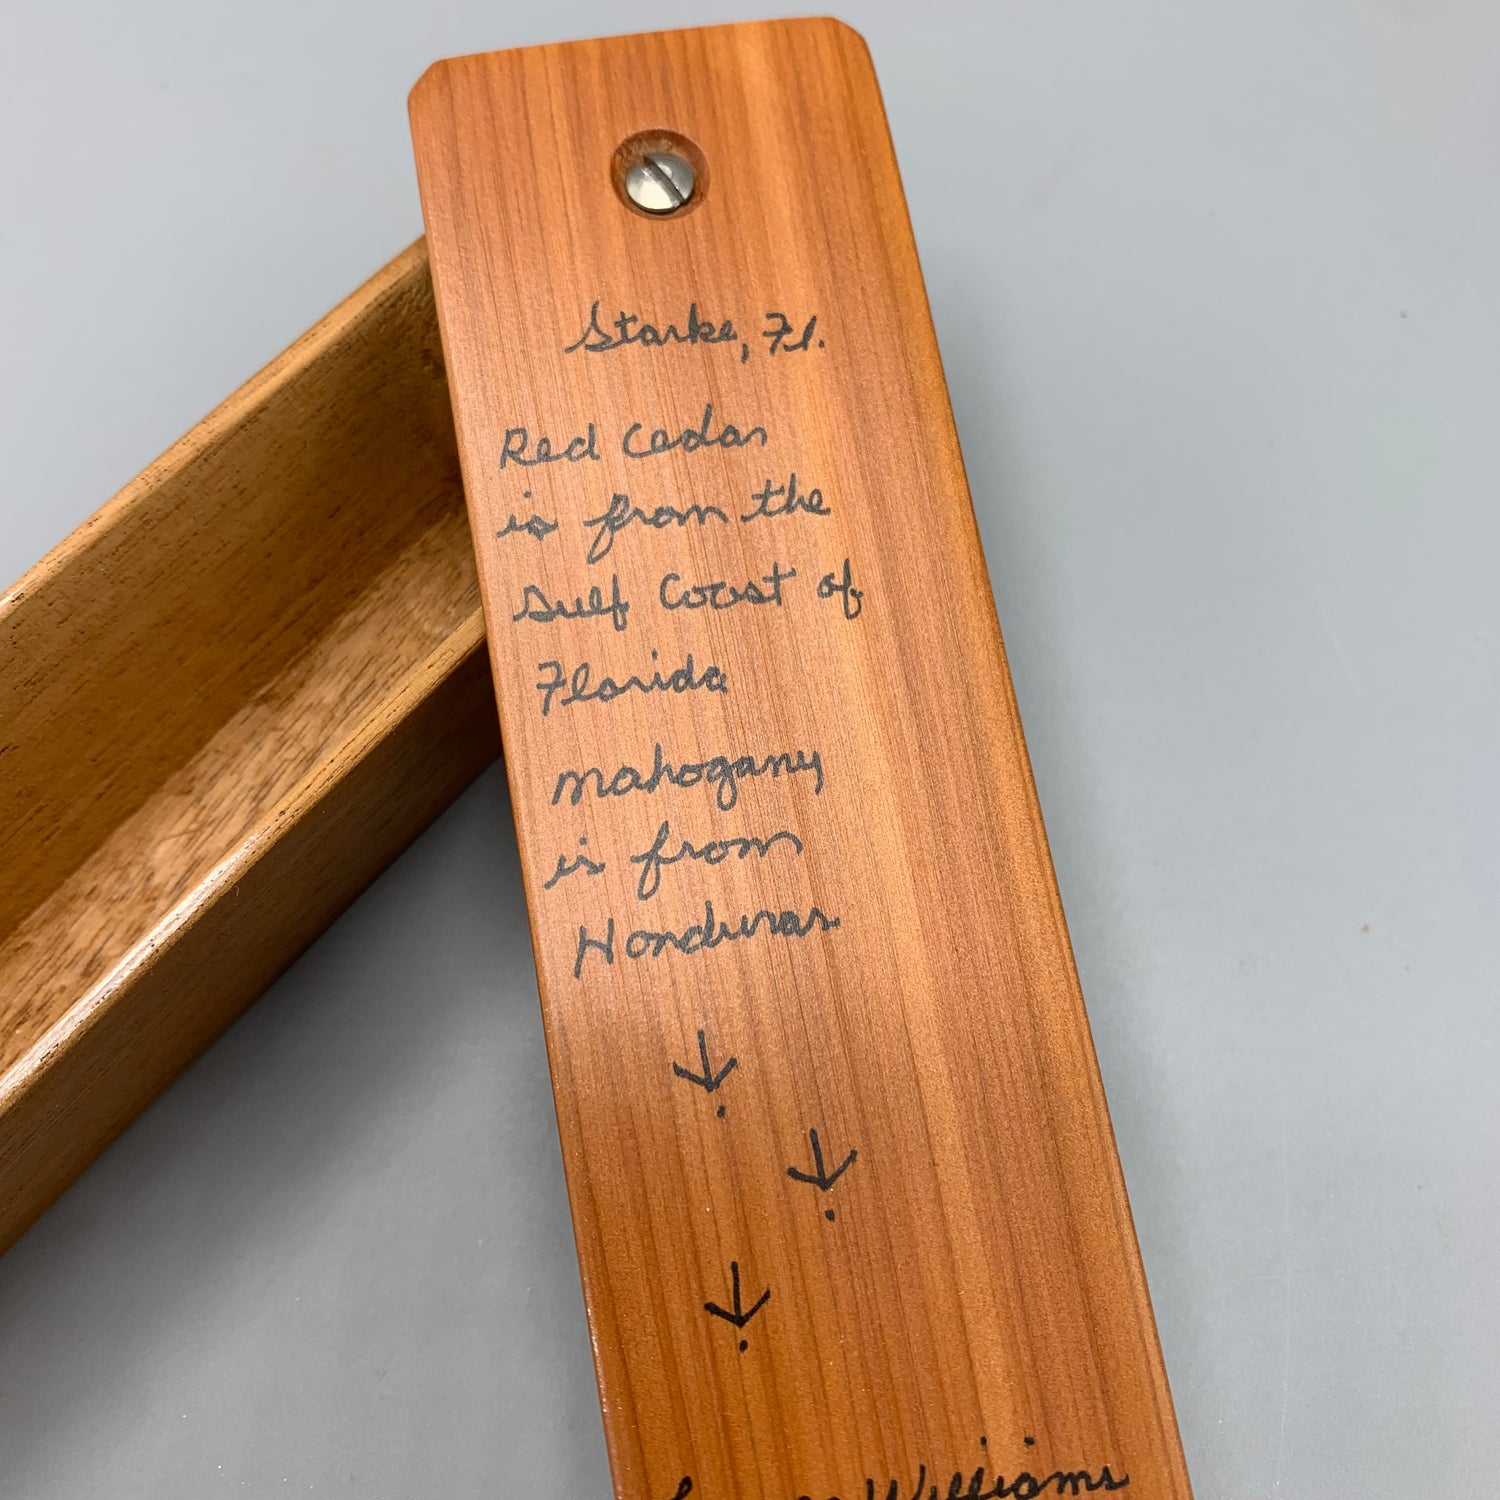 Starke, Fl.
Red Cedar
is from the
Gulf Coast of
Florida
Mahogany
is from
Honduras
Williams